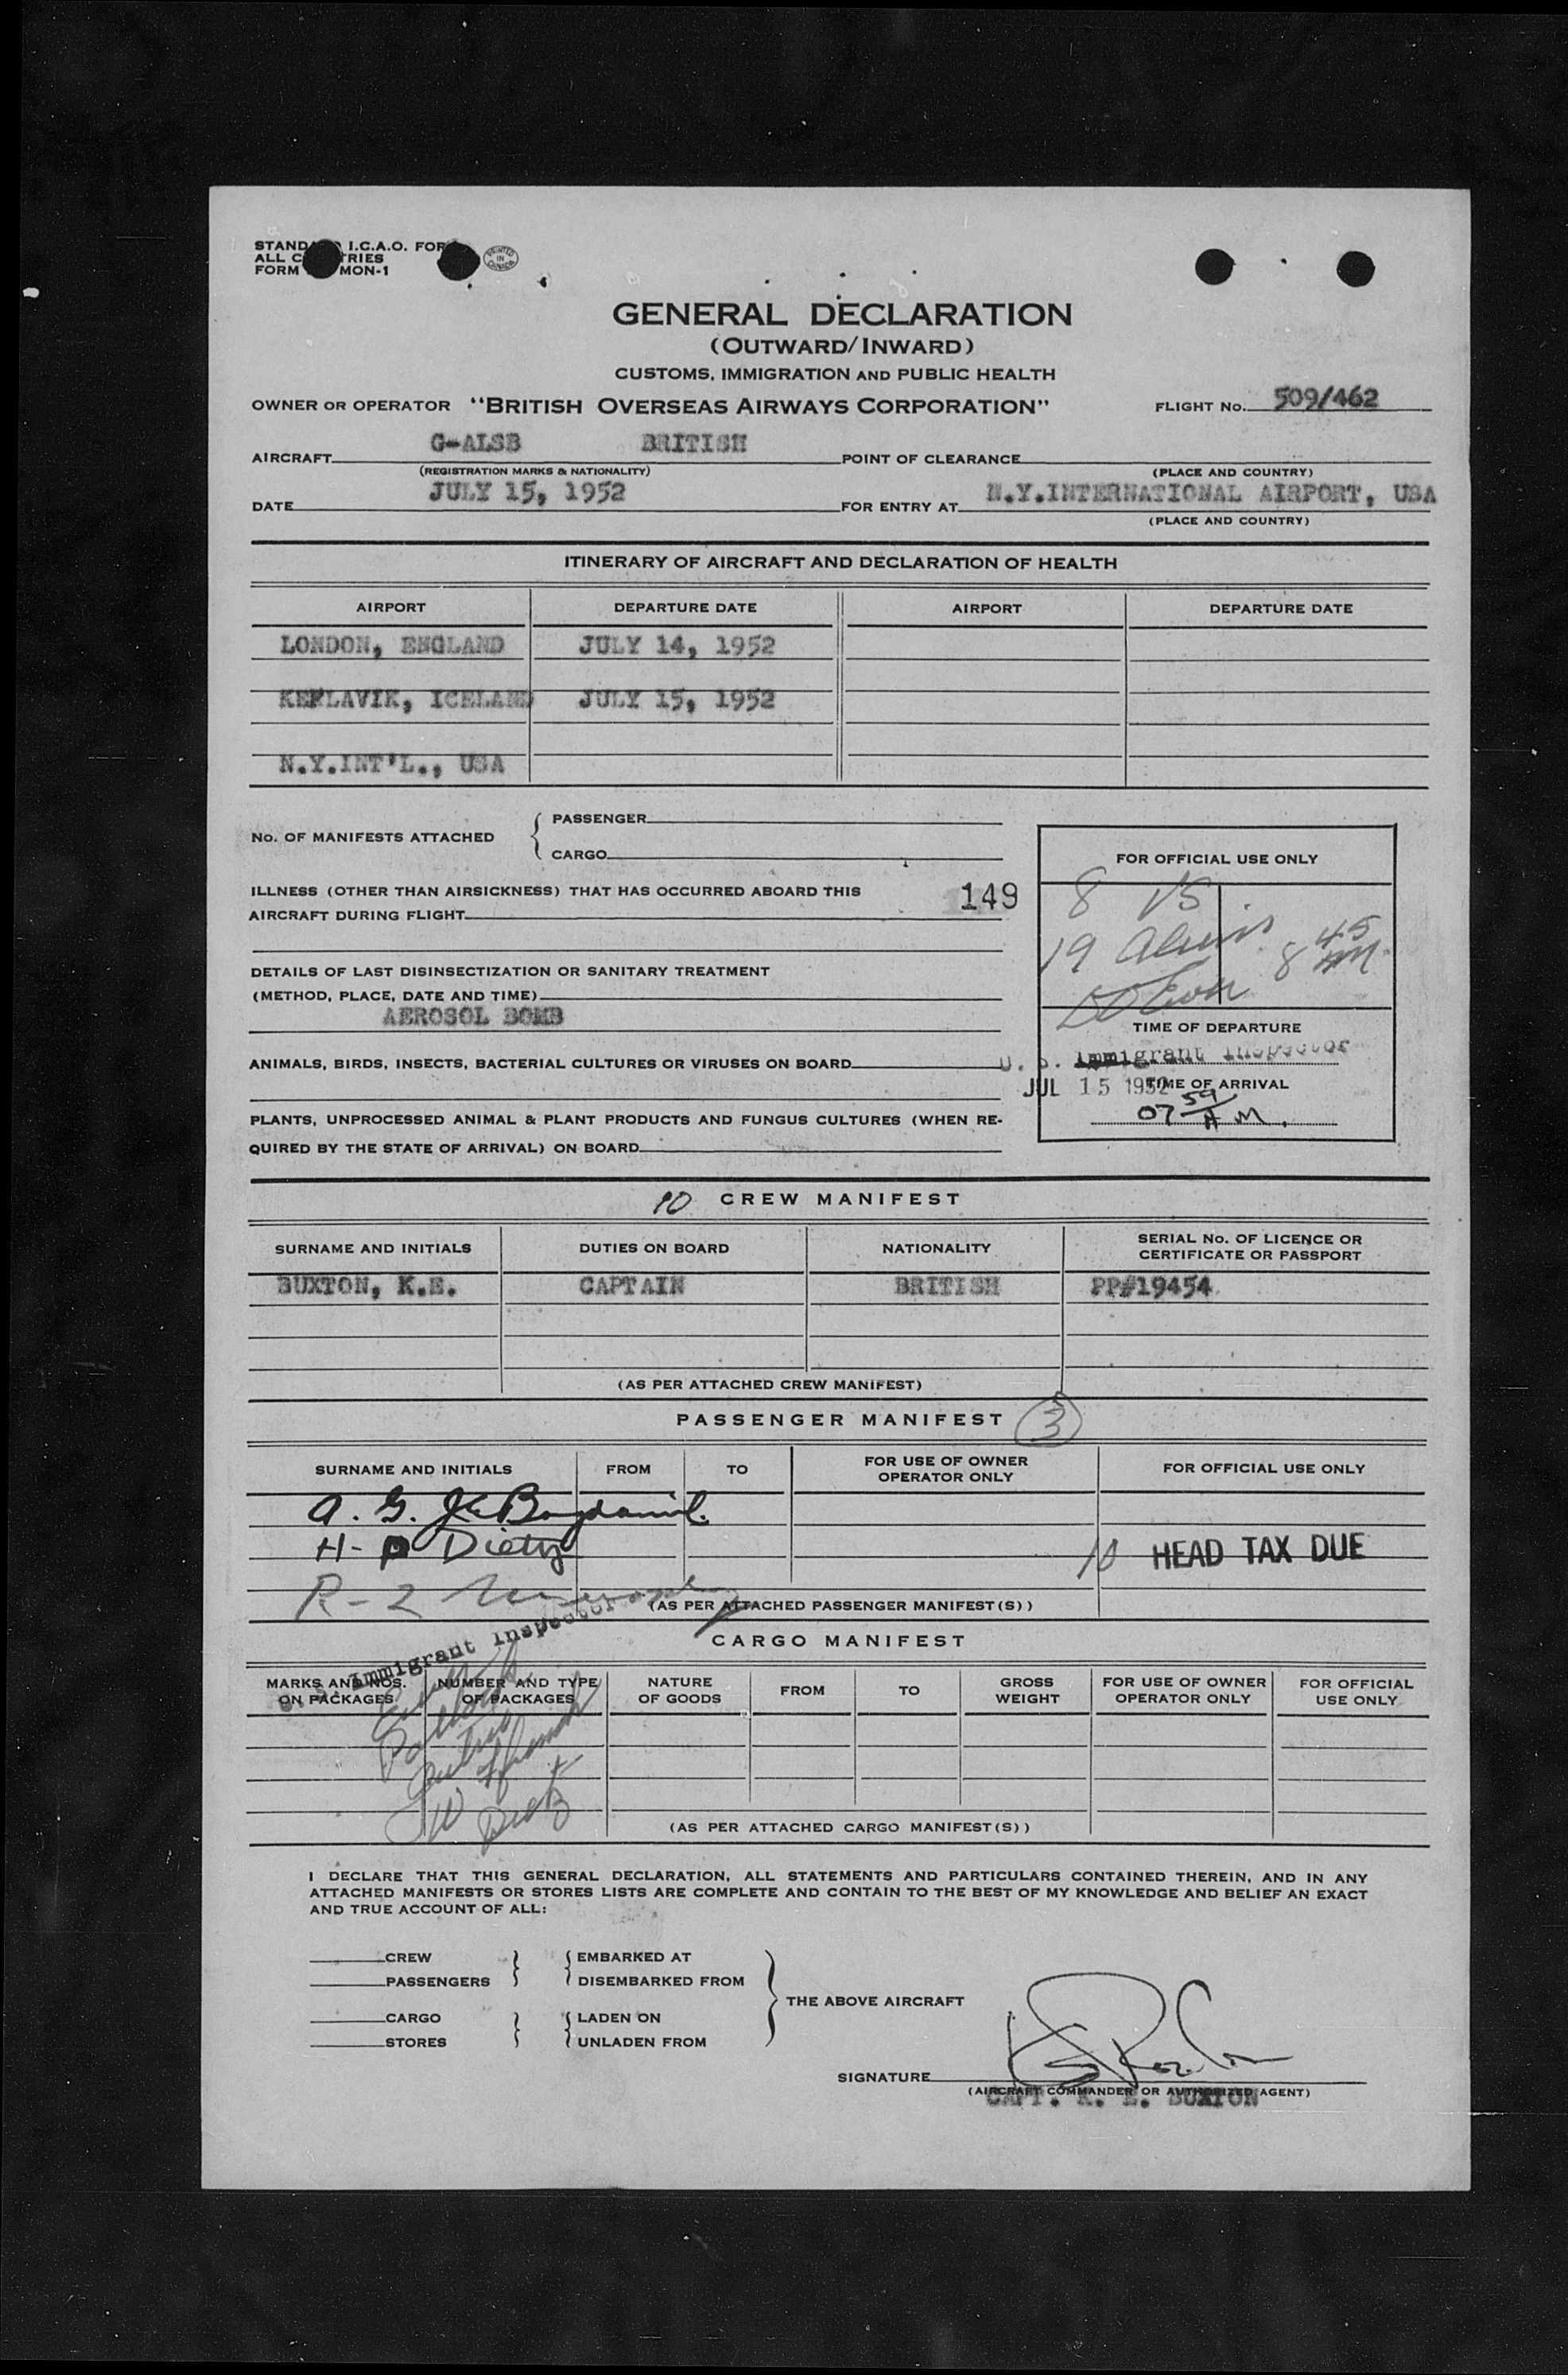 STAND I.C.A.O. FOR
ALL C TRIES
FORM MON-1
PRINTED IN CANADA
GENERAL DECLARATION
(OUTWARD/INWARD)
CUSTOMS, IMMIGRATION AND PUBLIC HEALTH
OWNER OR OPERATOR "BRITISH OVERSEAS AIRWAYS CORPORATION" FLIGHT No. 509/462
AIRCRAFT G-ALSB BRITISH POINT OF CLEARANCE
(REGISTRATION MARKS & NATIONALITY) (PLACE AND COUNTRY)
DATE JULY 15, 1952 FOR ENTRY AT N.Y.INTERNATIONAL AIRPORT, USA
(PLACE AND COUNTRY)
ITINERARY OF AIRCRAFT AND DECLARATION OF HEALTH
AIRPORT DEPARTURE DATE AIRPORT DEPARTURE DATE
LONDON, ENGLAND JULY 14, 1952
KEFLAVIK, ICELAND JULY 15, 1952
N.Y.INT'L., USA
No. OF MANIFESTS ATTACHED { PASSENGER
CARGO
FOR OFFICIAL USE ONLY
ILLNESS (OTHER THAN AIRSICKNESS) THAT HAS OCCURRED ABOARD THIS
AIRCRAFT DURING FLIGHT
149
8
19
8 45 AM
DETAILS OF LAST DISINSECTIZATION OR SANITARY TREATMENT
(METHOD, PLACE, DATE AND TIME)
AEROSOL BOMB
TIME OF DEPARTURE
ANIMALS, BIRDS, INSECTS, BACTERIAL CULTURES OR VIRUSES ON BOARD
U. S. Immigrant Inspector
JUL 15 1952
TIME OF ARRIVAL
07 59 A M.
PLANTS, UNPROCESSED ANIMAL & PLANT PRODUCTS AND FUNGUS CULTURES (WHEN RE-
QUIRED BY THE STATE OF ARRIVAL) ON BOARD
10 CREW MANIFEST
SURNAME AND INITIALS DUTIES ON BOARD NATIONALITY SERIAL No. OF LICENCE OR CERTIFICATE OR PASSPORT
BUXTON, K.E. CAPTAIN BRITISH PP#19454
(AS PER ATTACHED CREW MANIFEST)
PASSENGER MANIFEST 3
SURNAME AND INITIALS FROM TO FOR USE OF OWNER OPERATOR ONLY FOR OFFICIAL USE ONLY
A. G.
H- Dietz
10 HEAD TAX DUE
R-2
(AS PER ATTACHED PASSENGER MANIFEST(S))
Immigrant Inspector
CARGO MANIFEST
MARKS AND NOS. ON PACKAGES NUMBER AND TYPE OF PACKAGES NATURE OF GOODS FROM TO GROSS WEIGHT FOR USE OF OWNER OPERATOR ONLY FOR OFFICIAL USE ONLY
(AS PER ATTACHED CARGO MANIFEST(S))
I DECLARE THAT THIS GENERAL DECLARATION, ALL STATEMENTS AND PARTICULARS CONTAINED THEREIN, AND IN ANY
ATTACHED MANIFESTS OR STORES LISTS ARE COMPLETE AND CONTAIN TO THE BEST OF MY KNOWLEDGE AND BELIEF AN EXACT
AND TRUE ACCOUNT OF ALL:
CREW } { EMBARKED AT
PASSENGERS DISEMBARKED FROM
THE ABOVE AIRCRAFT
CARGO } { LADEN ON
STORES UNLADEN FROM
SIGNATURE
(AIRCRAFT COMMANDER OR AUTHORIZED AGENT)
CAPT. K. E. BUXTON